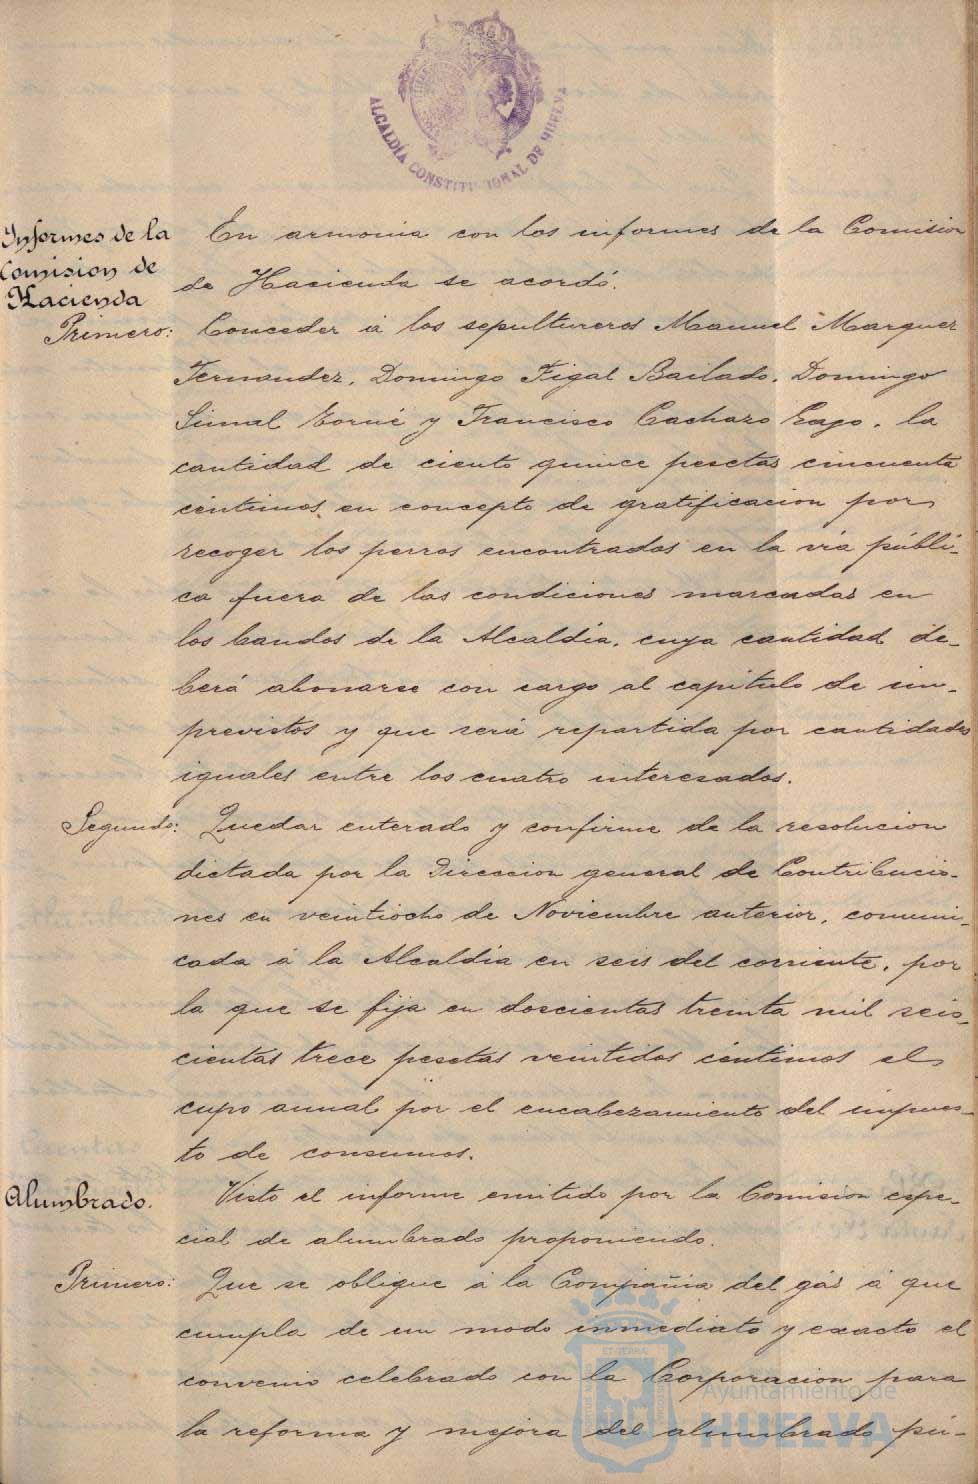 ALCALDÍA CONSTITUCIONAL DE HUELVA
Informes de la
Comision de
Hacienda
En armonia con los informes de la Comision
de Hacienda se acordó.
Primero: Conceder á los sepultureros Manuel Marquez
Fernandez, Domingo Figal Bailado, Domingo
y Francisco Cacharo la
cantidad de ciento quince pesetas cincuenta
céntimos en concepto de gratificacion por
recoger los perros encontrados en la via públi-
ca fuera de las condiciones marcadas en
los bandos de la Alcaldia, cuya cantidad de-
berá abonarse con cargo al capítulo de im-
previstos y que será repartida por cantidades
iguales entre los cuatro interesados.
Segundo: Quedar enterado y confirme de la resolucion
dictada por la Direccion general de Contribucio-
nes en veintiocho de Noviembre anterior, comuni-
cada á la Alcaldia en seis del corriente, por
la que se fija en doscientas treinta mil seis-
cientas trece pesetas veintidos céntimos el
cupo annal por el encabezamiento del impues-
to de consumos.
Alumbrado. Visto el informe emitido por la Comision espe-
cial de alumbrado proponiendo.
Primero: Que se obligue á la Compañia del gás á que
cumpla de un modo inmediato y exacto el
convenio celebrado con la Corporacion para
la reforma y mejora del alumbrado pú-
Ayuntamiento de
HUELVA